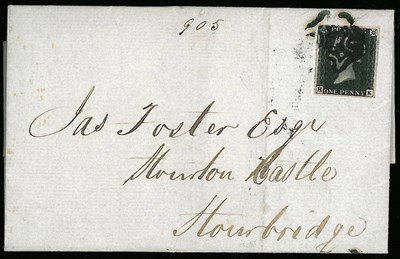 905
ONE PENNY
Jas Foster Esqr
Stourton Castle
Stourbridge